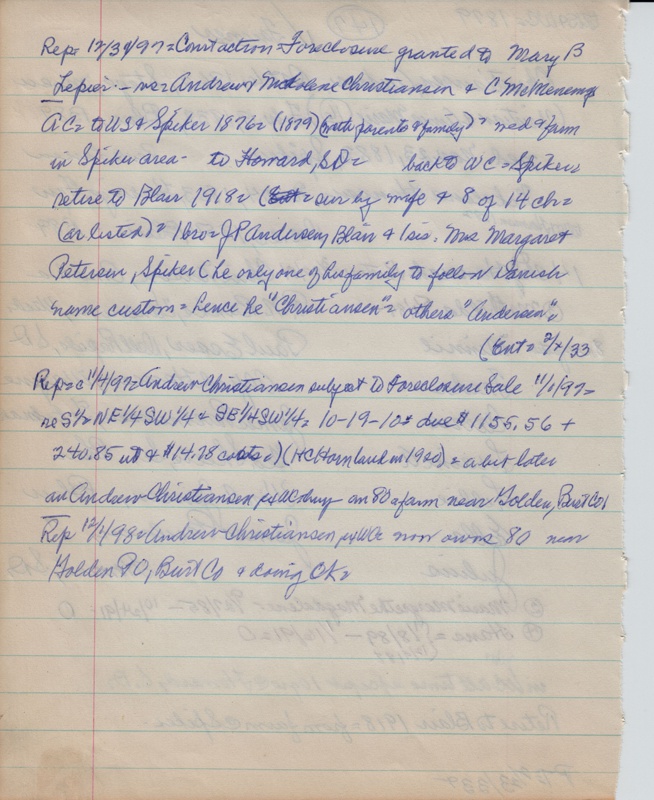 Rep= 12/31/97=Court action=Foreclosure granted to Mary B
Lepier - vs= Andrew & Magdalene Christiansen & C McMenemy
AC= to US & Spiker 1876= (1879) (with parents & family)= wed & farm
in Spiker area- to Howard, SD= back to WC=Spiker=
retire to Blair 1918= (Ent= sur by wife & 8 of 14 ch=
(as listed)= 1 bro= J P Andersen, Blair & 1 sis. Mrs Margaret
Petersen, Spiker (he only one of his family to follow Danish
name custom= hence he "Christiansen"= others "Andersen"=
(Ent= 2/ /33
Rep= c 11/4/97=Andrew Christiansen subject to Foreclosure Sale 11/1/97=
re S½= NE1/4 SW1/4 & SE1/4 SW1/4= 10-19-10= due $1155.56 +
240.85 int & $14.78 costs=) (HC Horn land in 1900)= a bit later
an Andrew Christiansen px WC buy an 80 a farm near Golden, Burt Co)
Rep 12/1/98=Andrew Christiansen px WC now owns 80 near
Golden PO, Burt Co & doing OK=